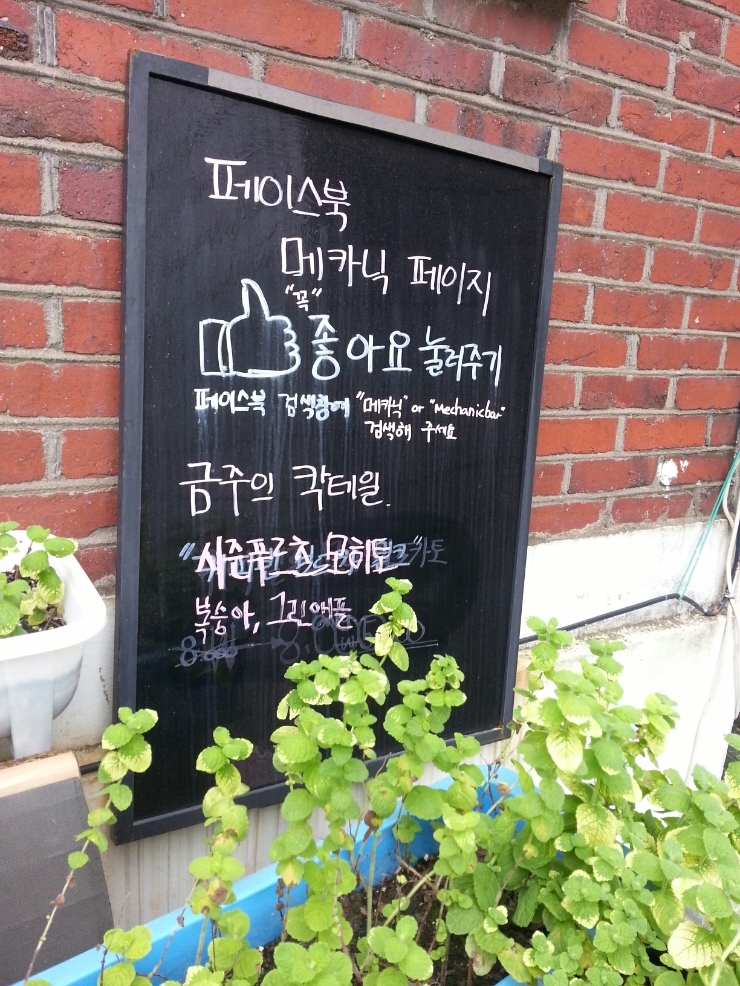 페이스북
메카닉 페이지
"꼭"
좋아요 눌러주기
페이스북 검색창에 "메카닉" or "mechanicbar"
검색해 주세요
금주의 칵테일.
"시즌푸르츠 모히토"
복숭아, 그린애플